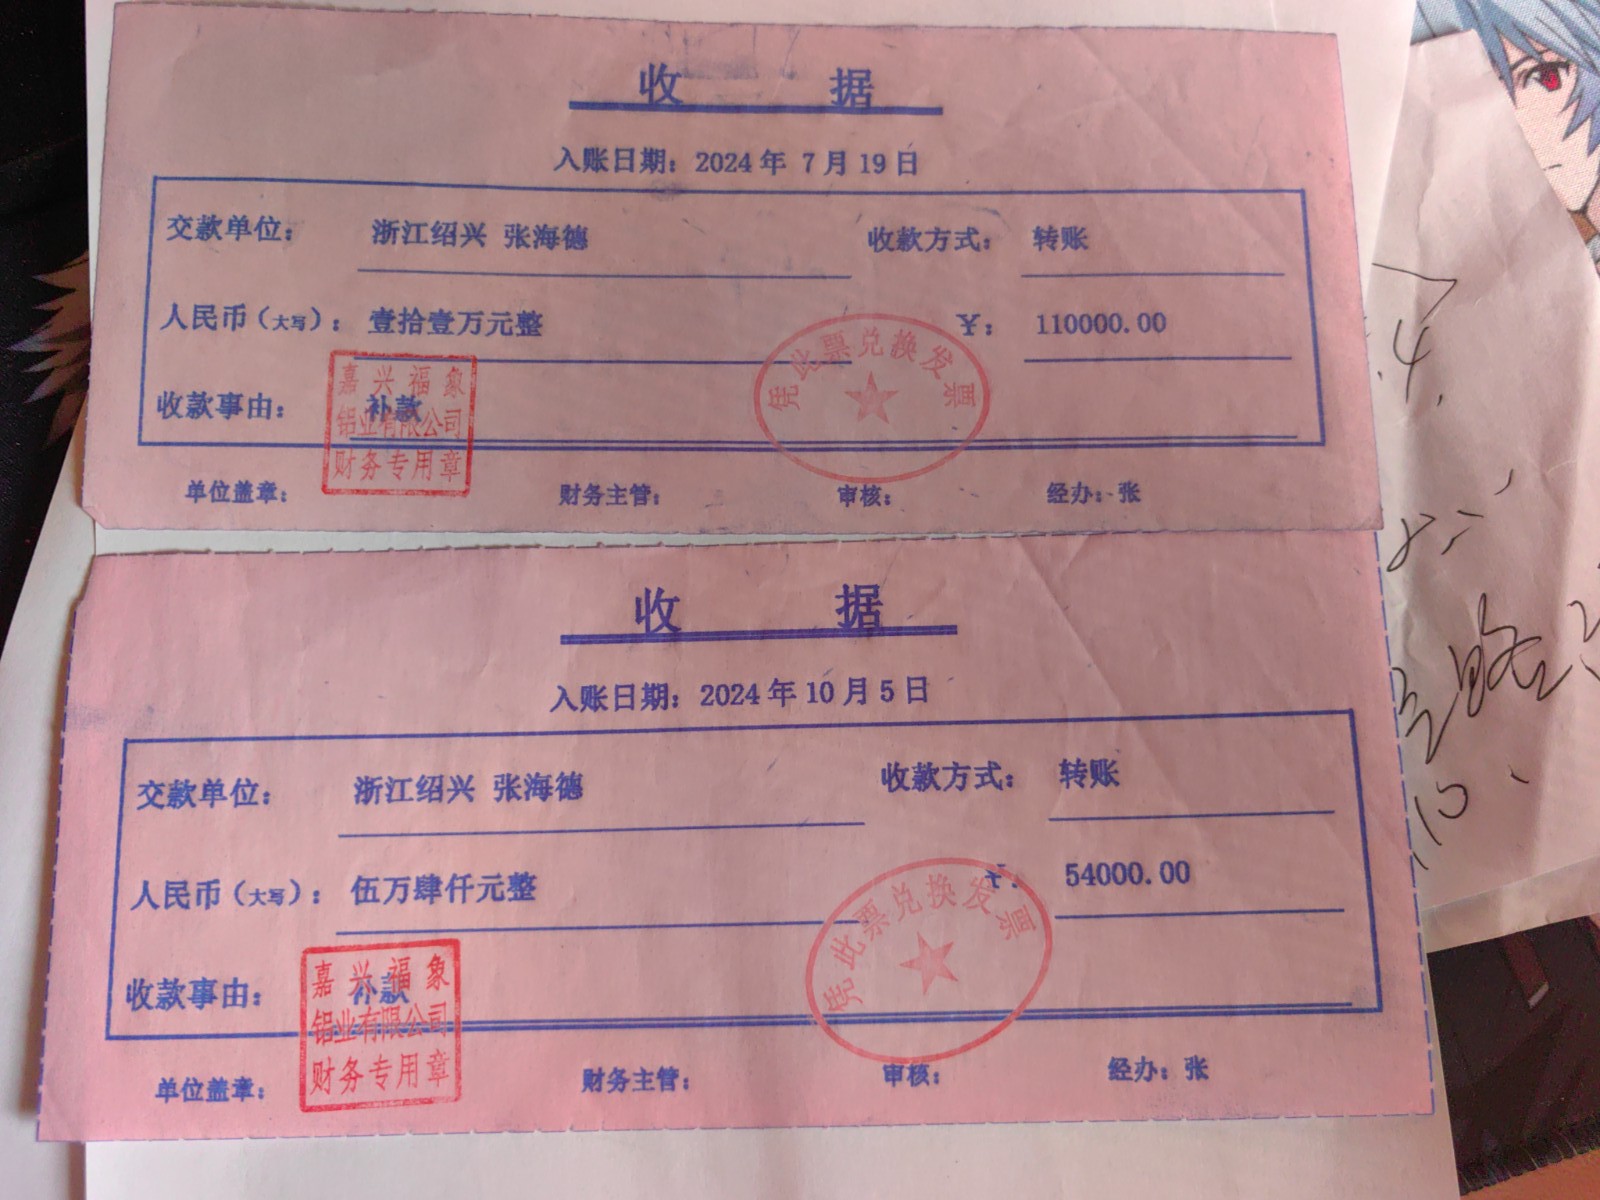 收 据
入账日期：2024 年 7 月 19 日
交款单位： 浙江绍兴 张海德 收款方式： 转账
人民币（大写）： 壹拾壹万元整 ￥： 110000.00
凭此票兑换发票
收款事由： 补款
嘉兴福象
铝业有限公司
财务专用章
单位盖章： 财务主管： 审核： 经办：张
收 据
入账日期：2024 年 10 月 5 日
交款单位： 浙江绍兴 张海德 收款方式： 转账
人民币（大写）： 伍万肆仟元整 ￥： 54000.00
凭此票兑换发票
收款事由： 补款
嘉兴福象
铝业有限公司
财务专用章
单位盖章： 财务主管： 审核： 经办：张